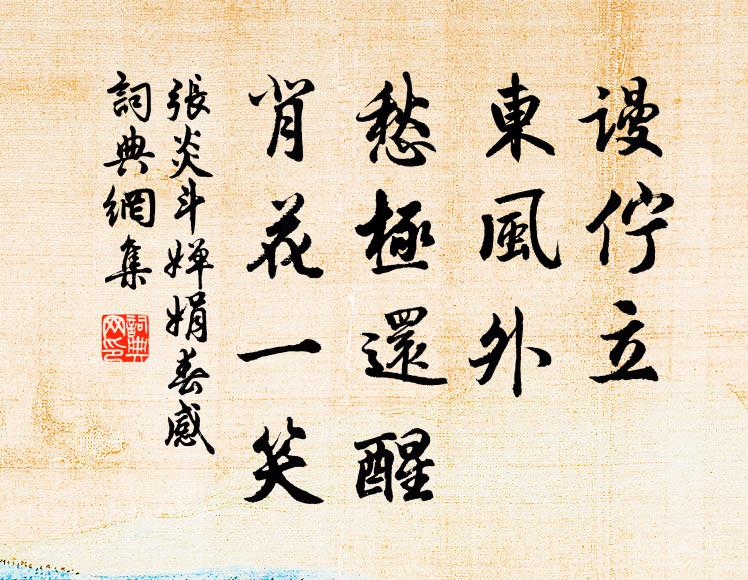 謾佇立
東風外
愁極還醒
背花一笑
張炎斗嬋娟春感
詞典網集
詞典
网印